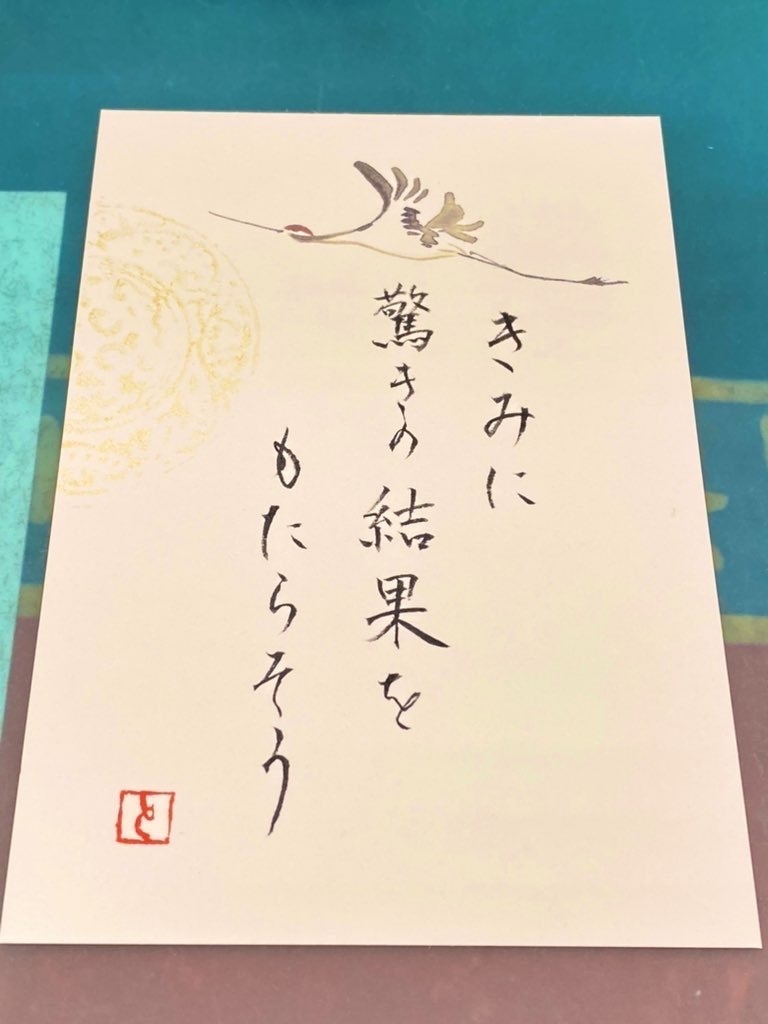 きみに
驚きの結果を
もたらそう
と